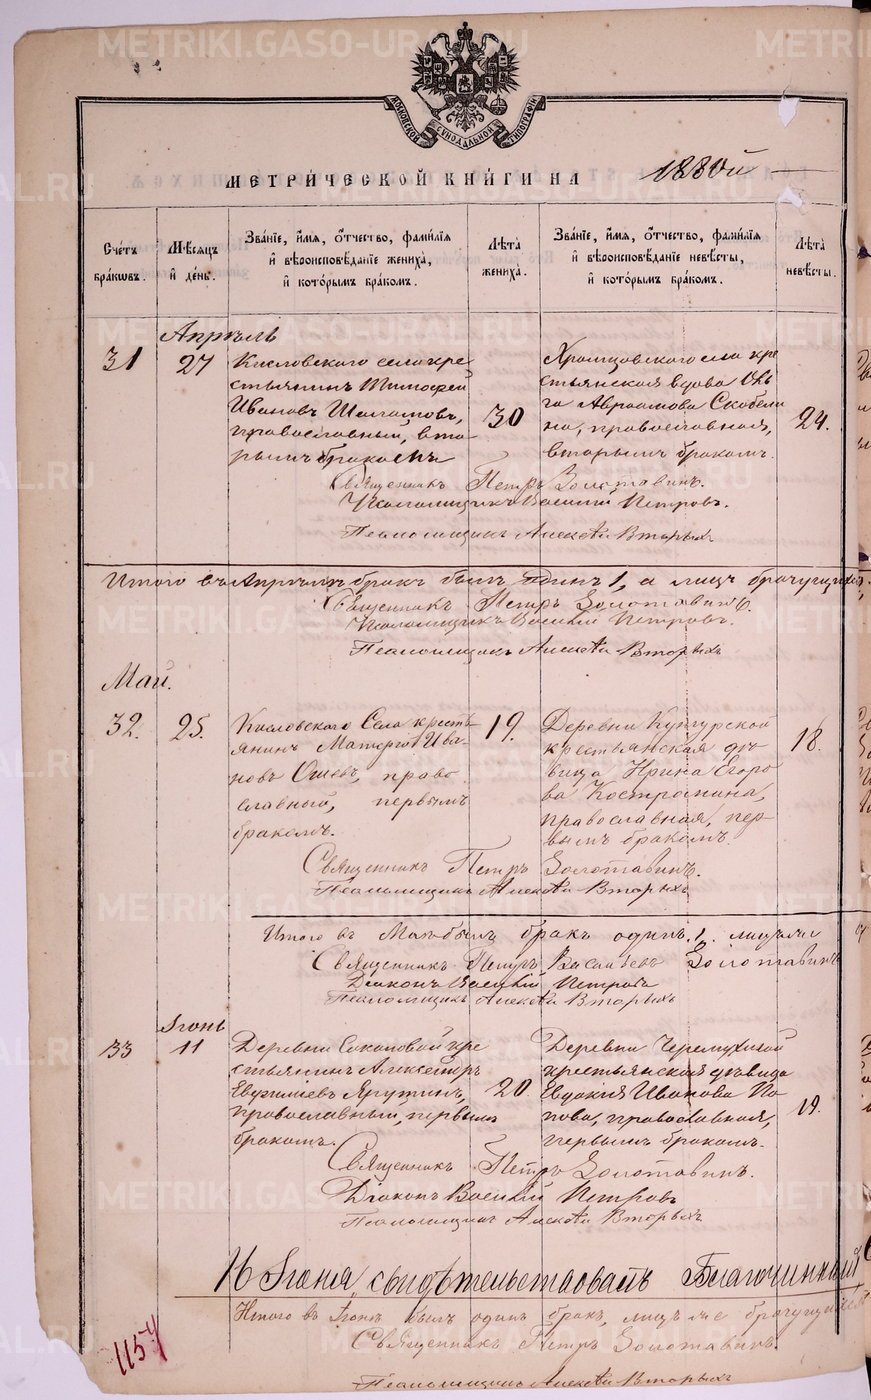 METRIKI.GASO-URAL.RU
МОСКОВСКОЙ СѴНОДАЛЬНОЙ ТИПОГРАФІИ
МЕТРИЧЕСКОЙ КНИГИ НА 1880й
Счетъ браковъ.
Мѣсяцъ и день.
Званіе, имя, отчество, фамилія и вѣроисповѣданіе жениха, и которымъ бракомъ.
Лѣта жениха.
Званіе, имя, отчество, фамилія и вѣроисповѣданіе невѣсты, и которымъ бракомъ.
Лѣта невѣсты.
Апрѣль
31
27
Кисловскаго села кре
стьянинъ Тимофей
Ивановъ Шаламовъ,
православный, вто
рымъ бракомъ
30
Храмцовскаго села кре
стьянская вдова Оль
га Авраамова Скобели
на, православная,
вторымъ бракомъ.
24.
Священникъ Петръ Золотавинъ.
Псаломщикъ Василий Петровъ.
Псаломщикъ Алексѣй Вторыхъ
Итого въ Апрѣлѣ бракъ былъ одинъ 1, а лицъ брачущихся
Священникъ Петръ Золотавинъ.
Псаломщикъ Василий Петровъ.
Псаломщикъ Алексѣй Вторыхъ
Май.
32.
25.
Кисловскаго Села кресть
янинъ Ива-
новъ Ошевъ, право
славный, первымъ
бракомъ.
19.
Деревни Кунгурской
крестьянская дѣ
вица Ирина Егоро
ва Костромина,
православная, пер
вымъ бракомъ.
18.
Священникъ Петръ Золотавинъ.
Псаломщикъ Алексѣй Вторыхъ
Итого въ Маѣ былъ бракъ одинъ. 1. лицъ
Священникъ Петръ Васильевъ Золотавинъ
Діаконъ Василий Петровъ
Псаломщикъ Алексѣй Вторыхъ
Іюнь
33
11
Деревни Соколовой кре
стьянинъ Александръ
Евфимиевъ Ярутинъ,
православный, первымъ
бракомъ.
20
Деревни Черемхиной
крестьянская дѣвица
Евдокия Иванова По
пова, православная,
первымъ бракомъ.
19.
Священникъ Петръ Золотавинъ.
Діаконъ Василий Петровъ
Псаломщикъ Алексѣй Вторыхъ
16 Іюня, свидѣтельствовалъ Благочинный
Итого въ Іюнѣ былъ одинъ бракъ, лицъ же брачущихся
Священникъ Петръ Золотавинъ.
Псаломщикъ Алексѣй Вторыхъ